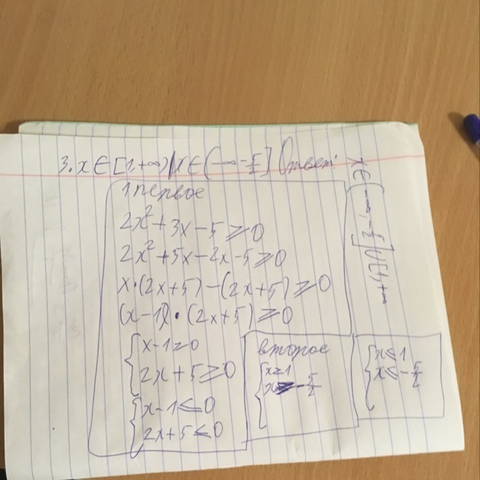 3. x ∈ [1, +∞) x ∈ (-∞ - 5/2] Ответ:
x ∈ (-∞, - 5/2] ∪ [1, +∞
1 первое
2x² + 3x - 5 ≥ 0
2x² + 5x - 2x - 5 ≥ 0
x · (2x + 5) - (2x + 5) ≥ 0
(x - 1) · (2x + 5) ≥ 0
{ x - 1 ≥ 0
2x + 5 ≥ 0
{ x - 1 ≤ 0
2x + 5 ≤ 0
второе
{ x ≥ 1
x ≥ - 5/2
{ x ≤ 1
x ≤ - 5/2